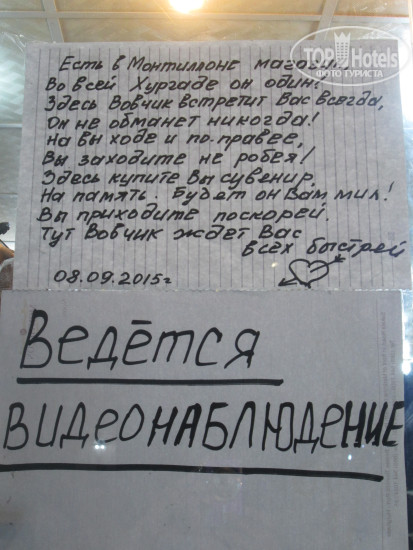 TOP Hotels
ФОТО ТУРИСТА
Есть в Монтиллоне магази
Во всей Хургаде он один!
Здесь Вовчик встретит Вас всегда,
Он не обманет никогда!
На выходе и по-правее,
Вы заходите не робея!
Здесь купите Вы сувенир,
На память. Будет он Вам мил!
Вы приходите поскорей.
Тут Вовчик ждет Вас
всех быстрей
08.09.2015г
Ведётся
видеонаблюдение